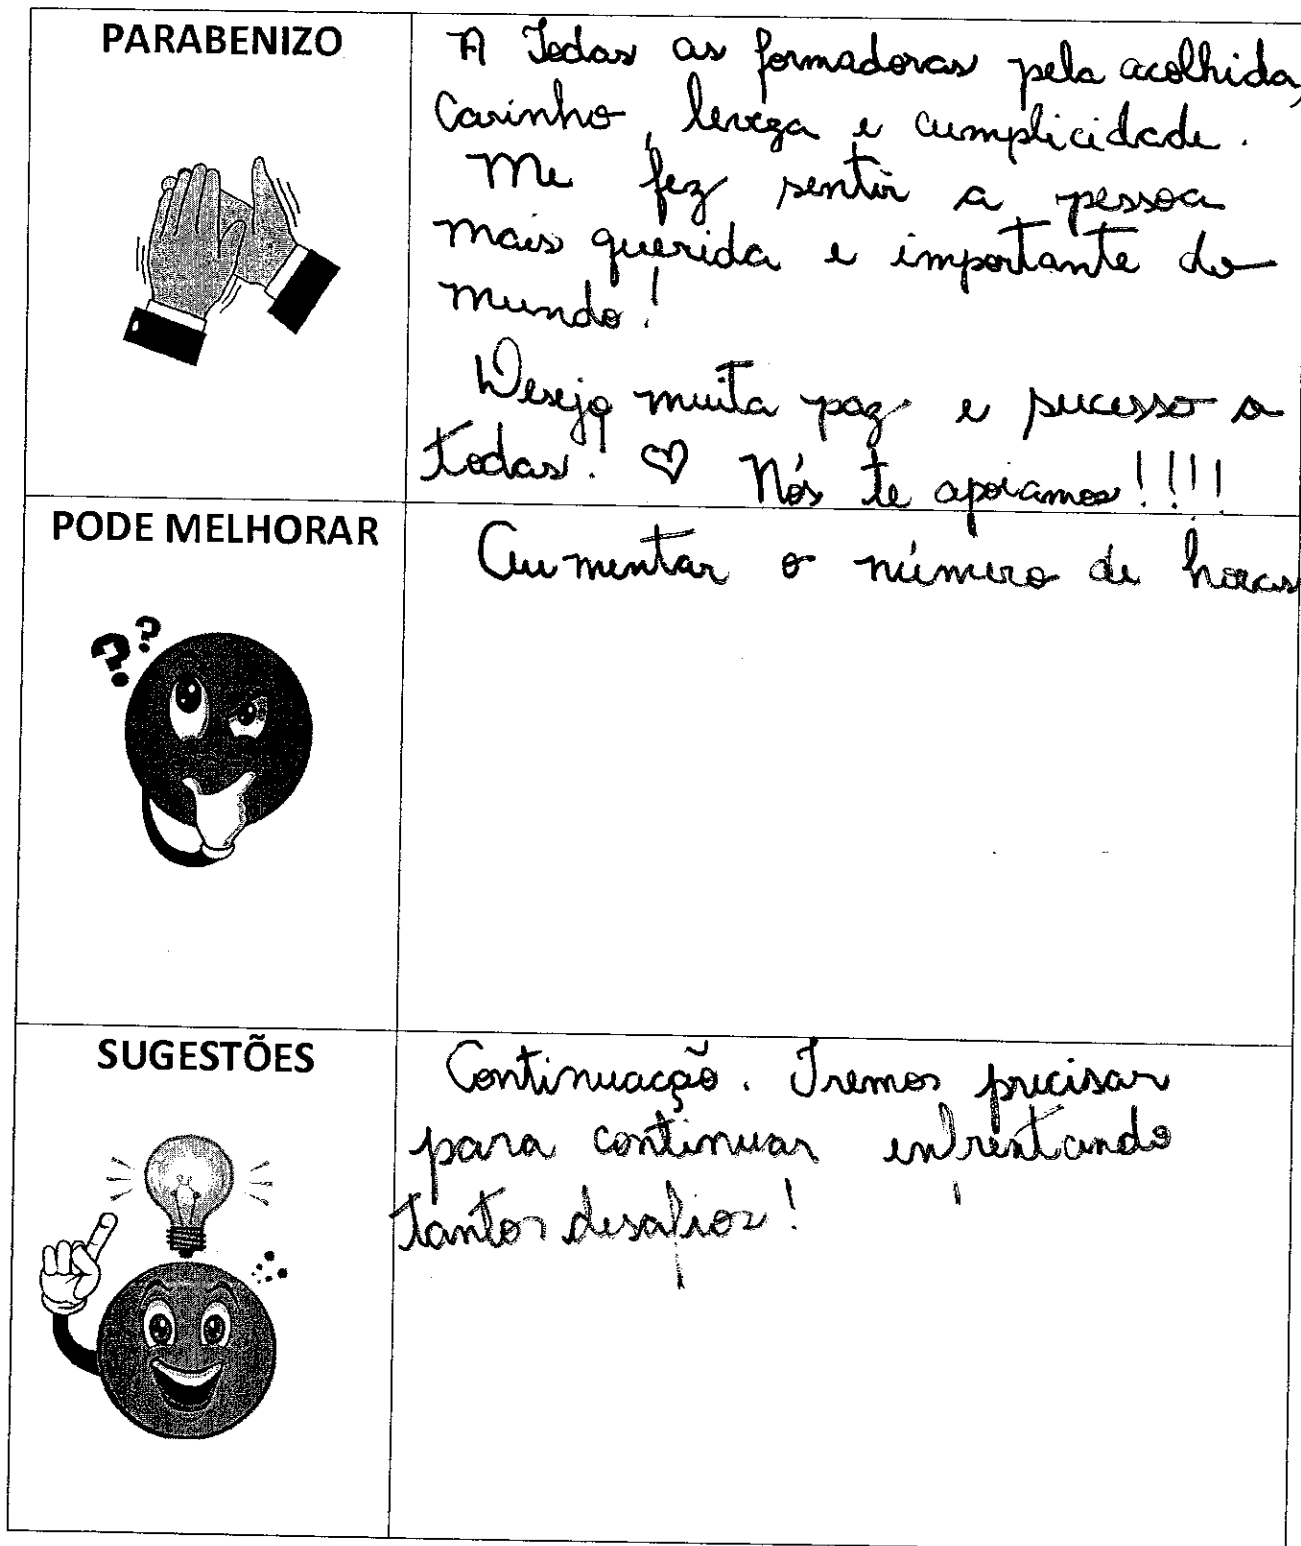 PARABENIZO
A Todas as formadoras pela acolhida,
Carinho, leveza e cumplicidade.
Me fez sentir a pessoa
mais querida e importante do
mundo!
Desejo muita paz e sucesso a
todas! ♡ Nós te apoiamos!!!!
PODE MELHORAR
Aumentar o número de horas
??
SUGESTÕES
Continuação. Iremos precisar
para continuar enfrentando
tantos desafios!